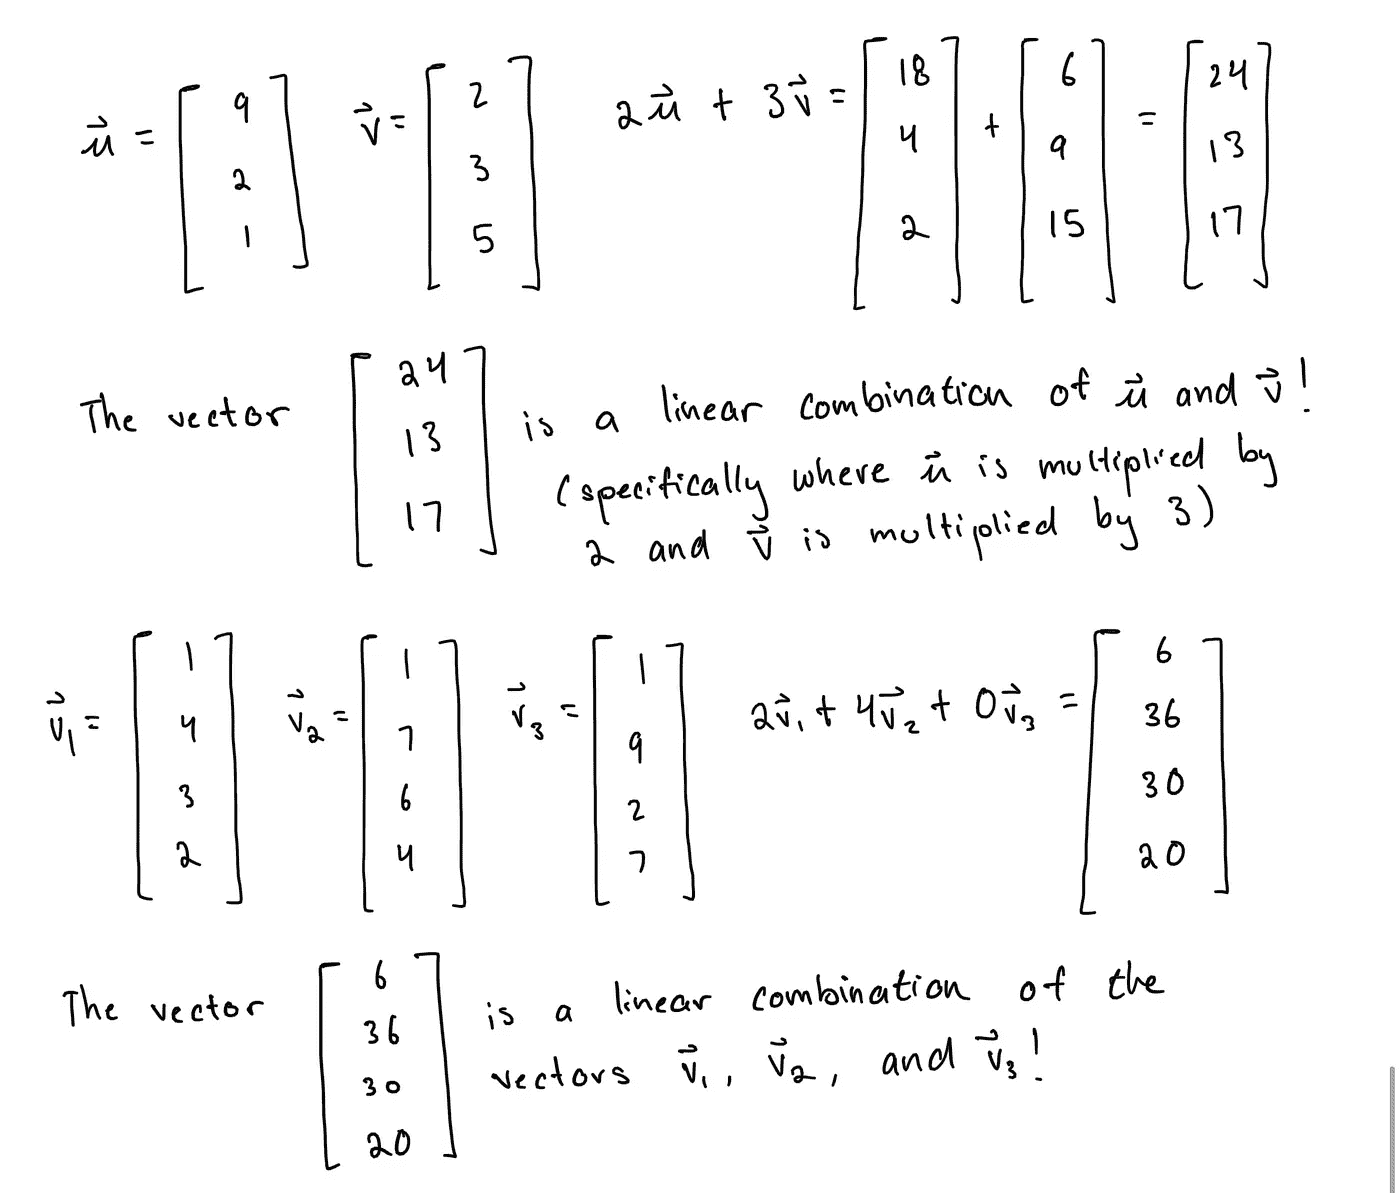 u⃗ = [9 2 1] v⃗ = [2 3 5] 2u⃗ + 3v⃗ = [18 4 2] + [6 9 15] = [24 13 17]
The vector [24 13 17] is a linear combination of u⃗ and v⃗!
(specifically where u⃗ is multiplied by
2 and v⃗ is multiplied by 3)
v⃗₁ = [1 4 3 2] v⃗₂ = [1 7 6 4] v⃗₃ = [1 9 2 7] 2v⃗₁ + 4v⃗₂ + 0v⃗₃ = [6 36 30 20]
The vector [6 36 30 20] is a linear combination of the
vectors v⃗₁, v⃗₂, and v⃗₃!